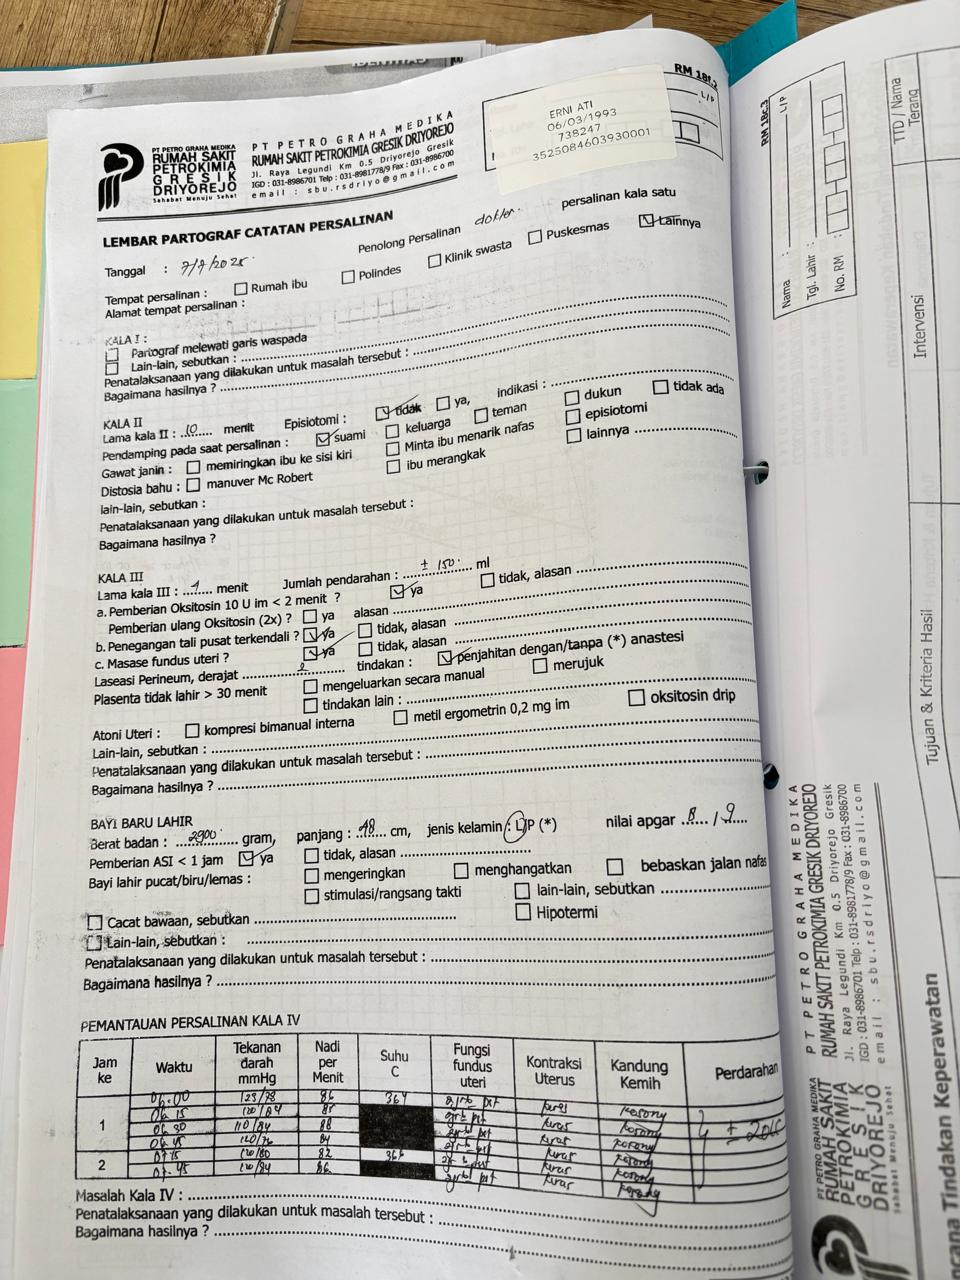 RM 18f.2
ERNI ATI
06/03/1993
738247
3525084603930001
L/P
PT PETRO GRAHA MEDIKA
RUMAH SAKIT
PETROKIMIA
GRESIK
DRIYOREJO
Sahabat Menuju Sehat
PT PETRO GRAHA MEDIKA
RUMAH SAKIT PETROKIMIA GRESIK DRIYOREJO
Jl. Raya Legundi Km 0.5 Driyorejo Gresik
IGD : 031-8986701 Telp : 031-8981778/9 Fax : 031-8986700
email : sbu.rsdriyo@gmail.com
LEMBAR PARTOGRAF CATATAN PERSALINAN
Tanggal : 7/7/2025. Penolong Persalinan dokter persalinan kala satu
Tempat persalinan : Rumah ibu Polindes Klinik swasta Puskesmas Lainnya
Alamat tempat persalinan :
KALA I :
Partograf melewati garis waspada
Lain-lain, sebutkan :
Penatalaksanaan yang dilakukan untuk masalah tersebut :
Bagaimana hasilnya ?
KALA II
Lama kala II : 10 menit Episiotomi : tidak ya, indikasi :
Pendamping pada saat persalinan : suami keluarga teman dukun tidak ada
Gawat janin : memiringkan ibu ke sisi kiri Minta ibu menarik nafas episiotomi
Distosia bahu : manuver Mc Robert ibu merangkak lainnya
lain-lain, sebutkan :
Penatalaksanaan yang dilakukan untuk masalah tersebut :
Bagaimana hasilnya ?
KALA III
Lama kala III : menit Jumlah pendarahan : ± 150 ml
a. Pemberian Oksitosin 10 U im < 2 menit ? ya tidak, alasan
Pemberian ulang Oksitosin (2x) ? ya alasan
b. Penegangan tali pusat terkendali ? ya tidak, alasan
c. Masase fundus uteri ? ya tidak, alasan
Laseasi Perineum, derajat 2 tindakan : penjahitan dengan/tanpa (*) anastesi
Plasenta tidak lahir > 30 menit mengeluarkan secara manual merujuk
tindakan lain :
Atoni Uteri : kompresi bimanual interna metil ergometrin 0,2 mg im oksitosin drip
Lain-lain, sebutkan :
Penatalaksanaan yang dilakukan untuk masalah tersebut :
Bagaimana hasilnya ?
BAYI BARU LAHIR
Berat badan : 2900 gram, panjang : 48 cm, jenis kelamin : L/P (*) nilai apgar 8 / 9
Pemberian ASI < 1 jam ya tidak, alasan
Bayi lahir pucat/biru/lemas : mengeringkan menghangatkan bebaskan jalan nafas
stimulasi/rangsang takti lain-lain, sebutkan
Cacat bawaan, sebutkan Hipotermi
Lain-lain, sebutkan :
Penatalaksanaan yang dilakukan untuk masalah tersebut :
Bagaimana hasilnya ?
PEMANTAUAN PERSALINAN KALA IV
Jam ke Waktu Tekanan darah mmHg Nadi per Menit Suhu C Fungsi fundus uteri Kontraksi Uterus Kandung Kemih Perdarahan
1 06.00 123/78 86 364 keras kosong
06.15 120/84 85 keras kosong
06.30 110/84 88 keras kosong
06.45 84 keras kosong
2 07.15 120/80 82 keras kosong
07.45 86 keras kosong
Masalah Kala IV :
Penatalaksanaan yang dilakukan untuk masalah tersebut :
Bagaimana hasilnya ?
RM 18c.3
Nama : L/P
Tgl. Lahir :
No. RM :
TTD / Nama
Terang
Intervensi
Tujuan & Kriteria Hasil
Tindakan Keperawatan
PT PETRO GRAHA MEDIKA
RUMAH SAKIT
PETROKIMIA
GRESIK
DRIYOREJO
Sahabat Menuju Sehat
PT PETRO GRAHA MEDIKA
RUMAH SAKIT PETROKIMIA GRESIK DRIYOREJO
Jl. Raya Legundi Km 0.5 Driyorejo Gresik
IGD : 031-8986701 Telp : 031-8981778/9 Fax : 031-8986700
email : sbu.rsdriyo@gmail.com